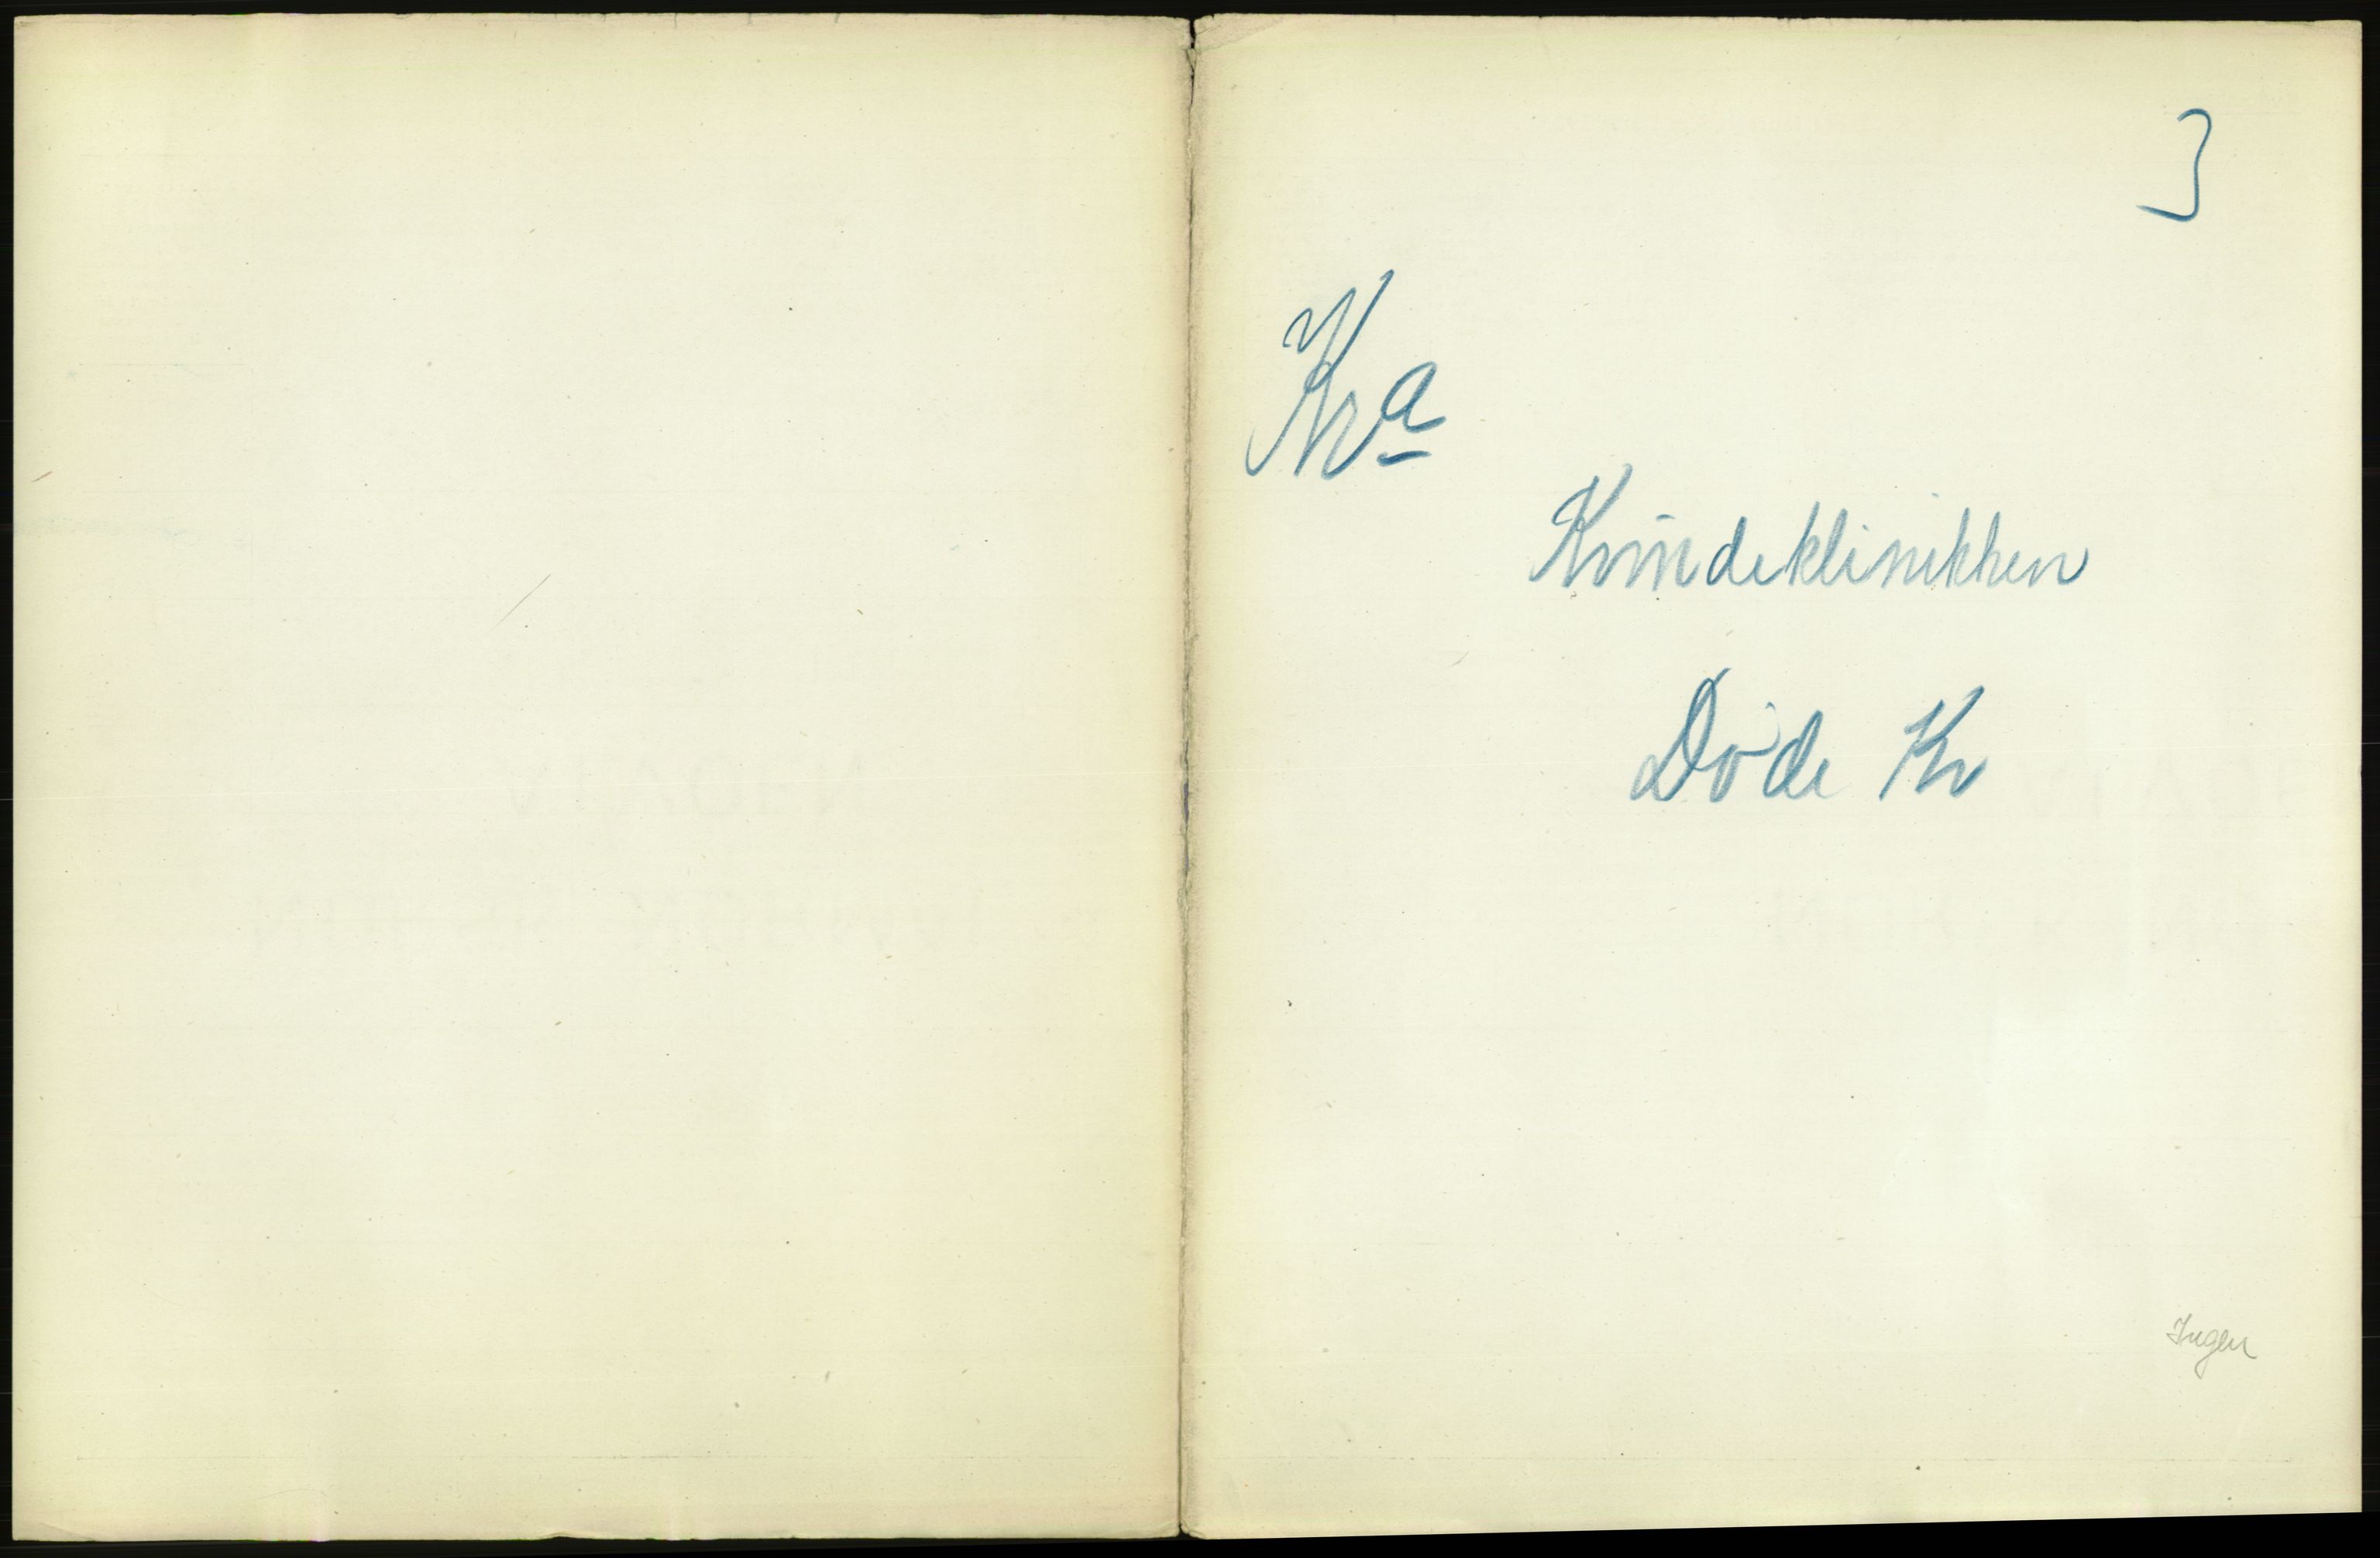 3
Kra
Kvindeklinikken
Døde Kv
Ingen